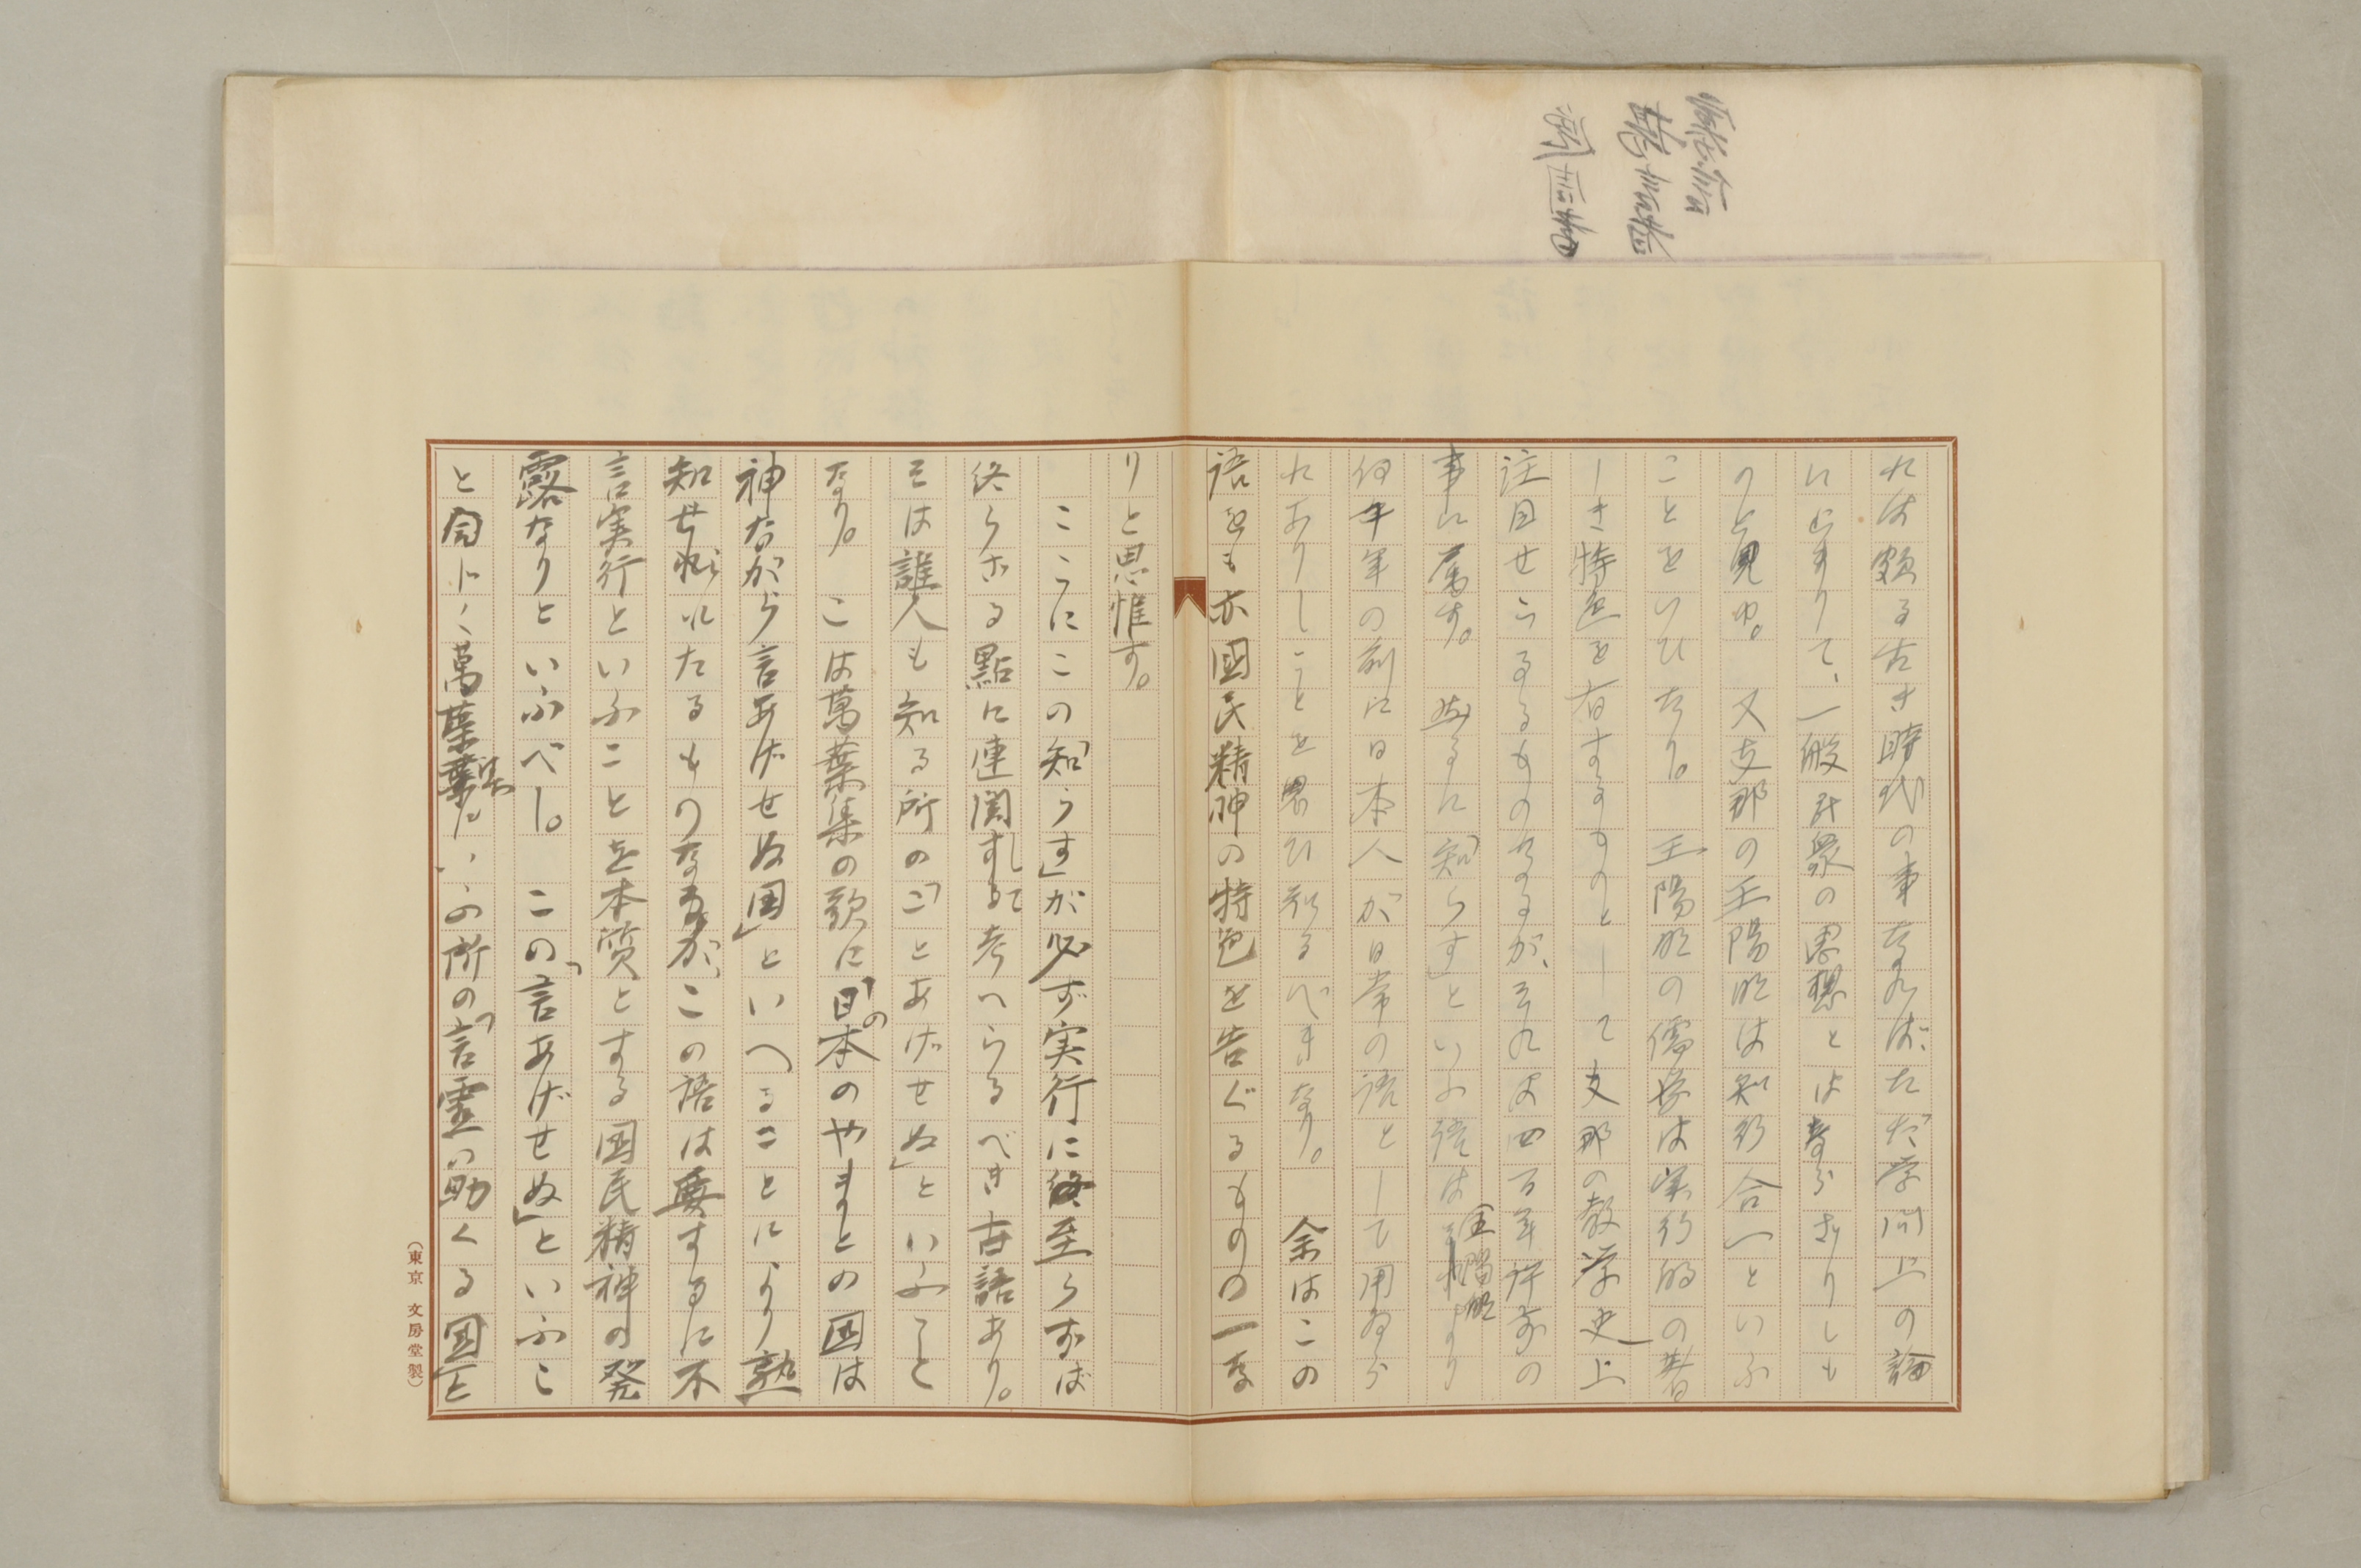 れは頗る古き時代の事なれば、たゞ学問上の論
に止まりて、一般民衆の思想とは ならざりしも
のと見ゆ。 又支那の王陽明は知行合一といふ
ことをいひたり。 王陽明の儒学は実行的の
しき特色を有するものとして支那の教学史上
注目せらるるものなるが、それは四百年許前の
事に属す。 然るに「知らす」といふ語は王陽明より
何千年の前に日本人が日常の語として用ゐら
れありしことを思ひ知るべきなり。 余はこの
語をも亦國民精神の特色を告ぐるものの一な
りと思惟す。
こゝにこの「知らす」が必ず実行に至らずば
終らざる點に連関して考へらるべき古語あり。
そは誰人も知る所の「ことあげせぬ」といふこと
なり。 こは萬葉集の歌に「日本のやまとの国は
神ながら言あげせぬ国」といへることにより熟
知せられたるものなるが、この語は要するに不
言実行といふことを本質とする国民精神の発
露なりといふべし。 この「言あげせぬ」といふこ
と同じく萬葉集にいふ所の「言霊の助くる国と
(東京 文房堂製)